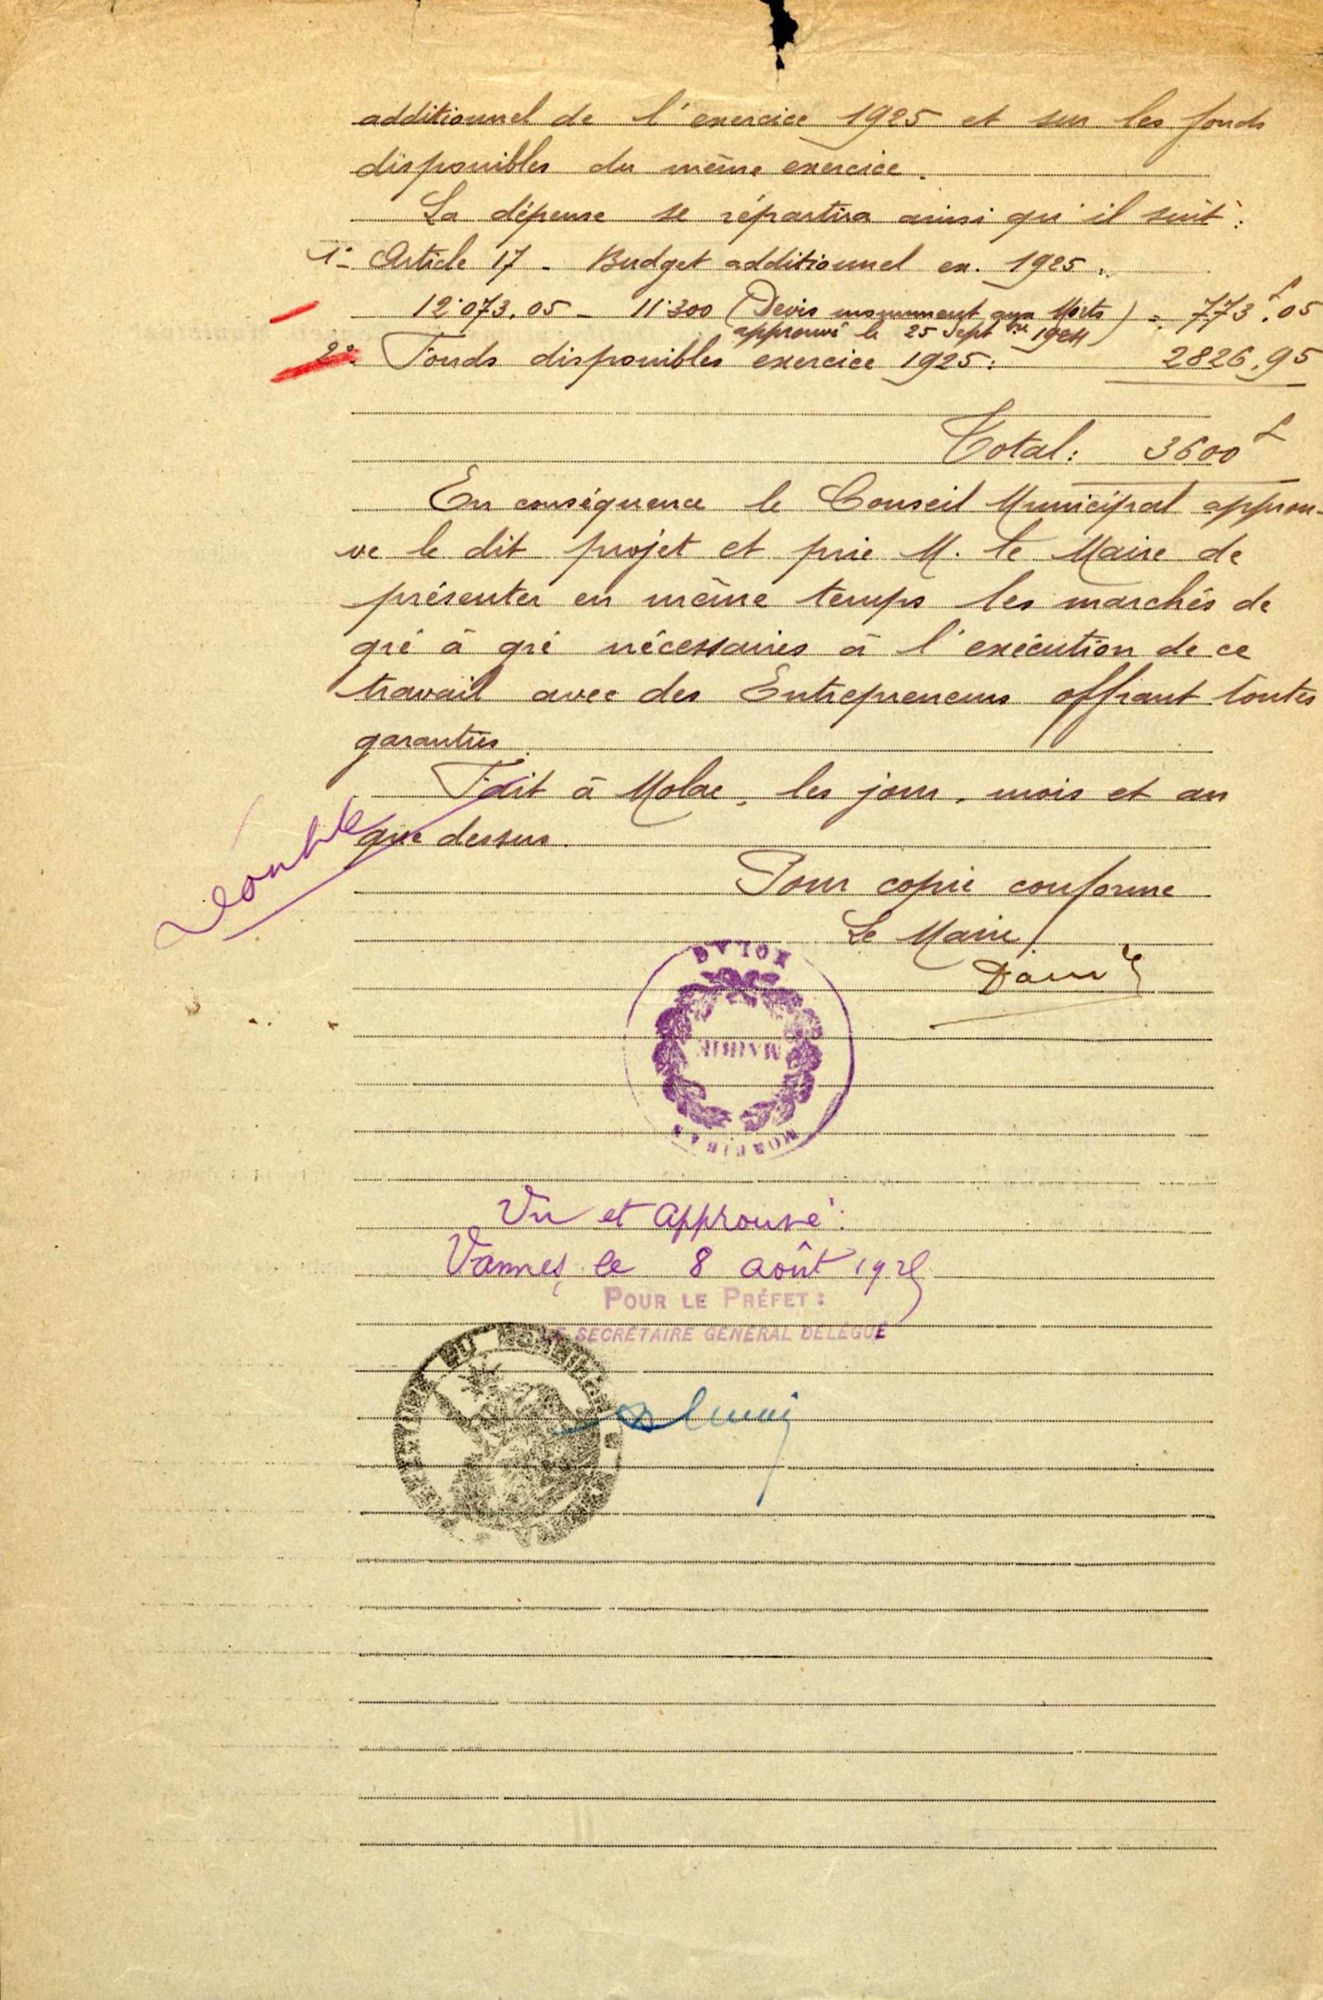 additionnel de l'exercice 1925 et sur les fonds
disponibles du même exercice.
La dépense se répartira ainsi qu'il suit :
1º Article 17 - Budget additionnel ex. 1925 :
12.073,05 - 11.300 (Devis monument aux Morts
approuvé le 25 Septbre 1924) = 773f,05
2º Fonds disponibles exercice 1925 : 2826,95
Total : 3600f
En conséquence le Conseil Municipal approu-
ve le dit projet et prie M. le Maire de
présenter en même temps les marchés de
gré à gré nécessaires à l'exécution de ce
travail avec des Entrepreneurs offrant toutes
garanties.
Fait à Molac, les jour, mois et an
que dessus.
Double
Pour copie conforme
Le Maire,
MOLAC
MAIRIE
MORBIHAN
Vu et approuvé :
Vannes, le 8 août 1925
POUR LE PRÉFET :
LE SECRÉTAIRE GÉNÉRAL DÉLÉGUÉ